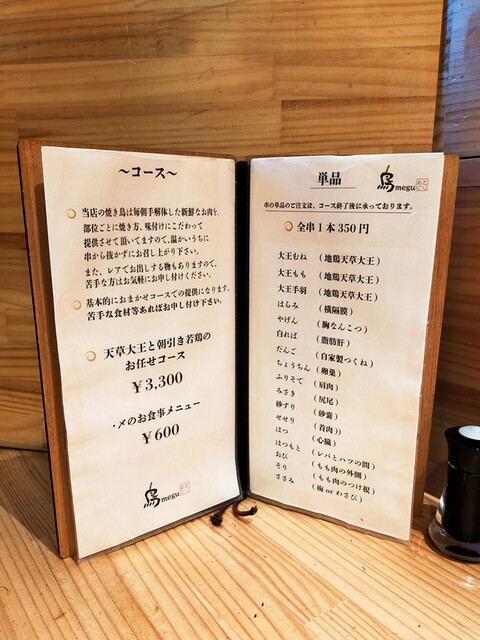 ～コース～
当店の焼き鳥は毎朝手解体した新鮮なお肉を、
部位ごとに焼き方、味付けにこだわって
提供させて頂いてますので、温かいうちに
串から抜かずにお召し上がり下さい。
また、レアでお出しする物もありますので、
苦手な方はお気軽にお申し付けください。
基本的におまかせコースでの提供になります。
苦手な食材等あればお申し付け下さい。
天草大王と朝引き若鶏の
お任せコース
￥3,300
・〆のお食事メニュー
￥600
鳥megu
単品
鳥megu
串の単品のご注文は、コース終了後に承っております。
全串1本350円
大王むね （地鶏天草大王）
大王もも （地鶏天草大王）
大王手羽 （地鶏天草大王）
はらみ （横隔膜）
やげん （胸なんこつ）
白れば （脂肪肝）
だんご （自家製つくね）
ちょうちん （卵巣）
ふりそで （肩肉）
みさき （尻尾）
砂ずり （砂嚢）
せせり （首肉））
はつ （心臓）
はつもと （レバとハツの間）
おび （もも肉の外側）
そり （もも肉のつけ根）
ささみ （梅 or わさび）